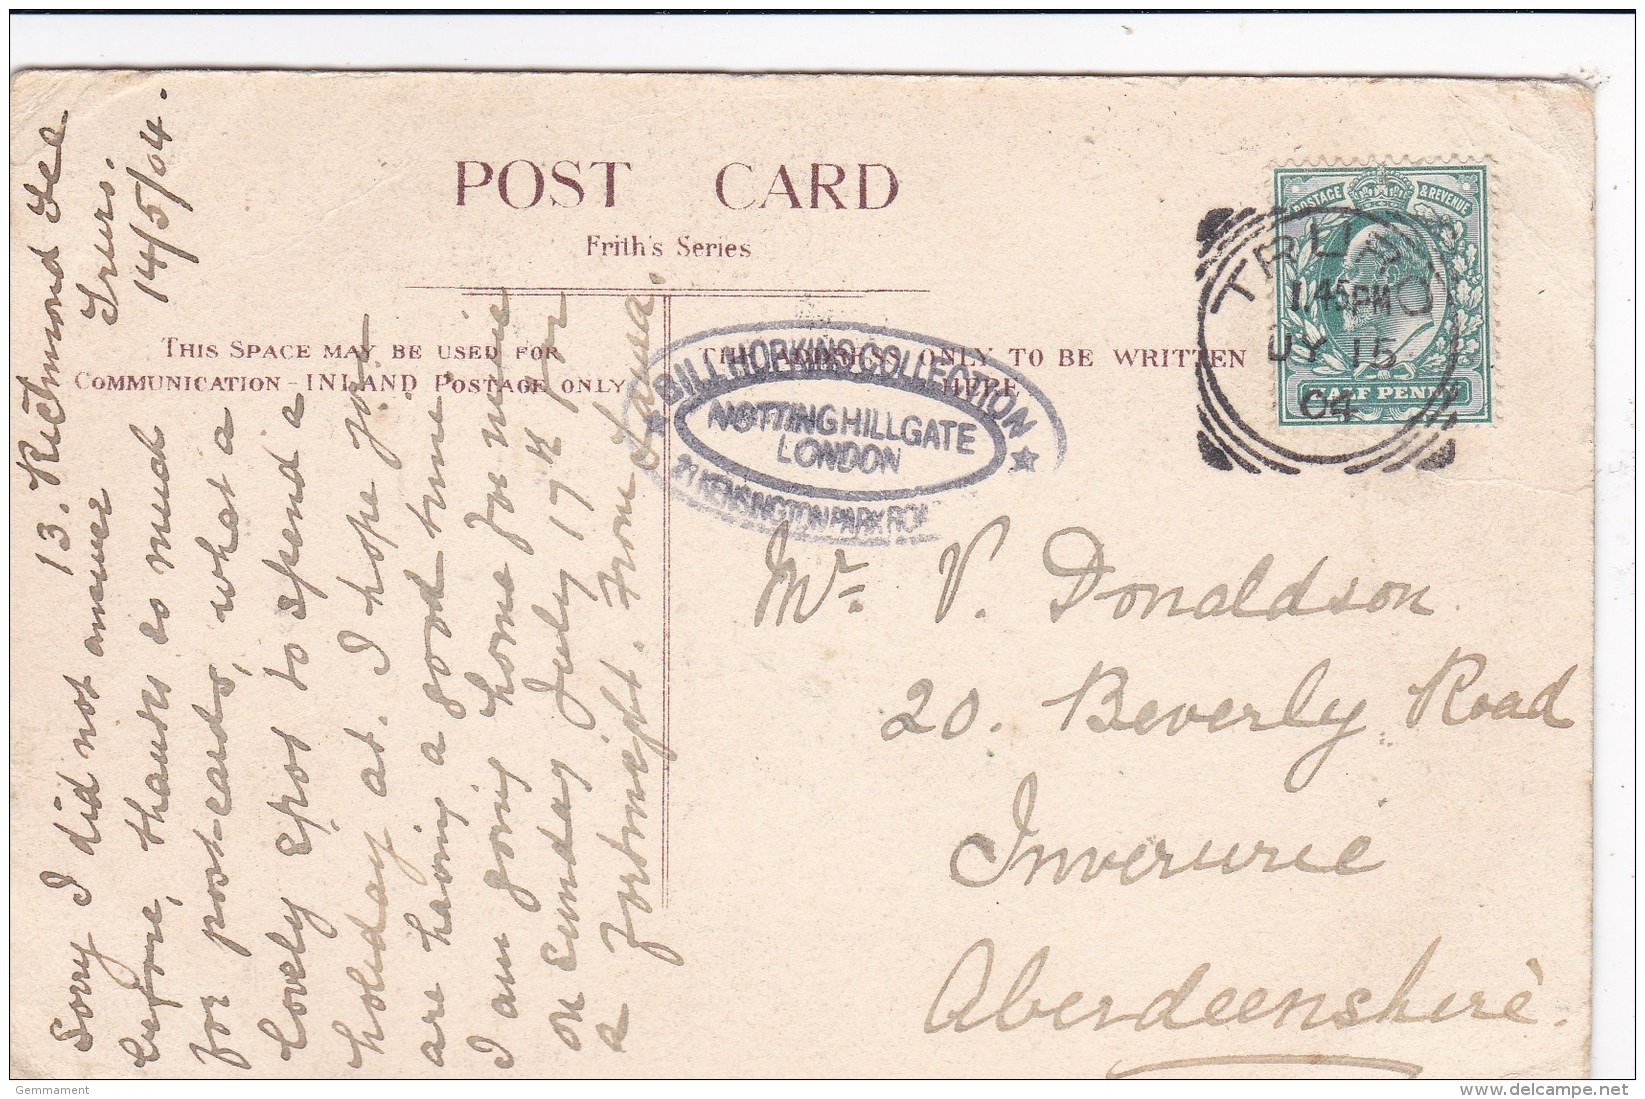 POST CARD
Frith's Series
THIS SPACE MAY BE USED FOR
COMMUNICATION - INLAND POSTAGE ONLY
THE ADDRESS ONLY TO BE WRITTEN
HERE
POSTAGE & REVENUE
HALF PENNY
TRURO
1.45PM
JY 15
04
BILL HOPKINS COLLECTION
NOTTINGHILLGATE
LONDON
KENSINGTON PARK ROAD
13. Richmond
14/5/04.
Sorry I did not answer
before, thanks so much
for post-cards, what a
lovely spot to spend a
holiday at. I hope you
are having a good time
I am going home for mine
on Sunday July 17th for
a fortnight. From
Mr. V. Donaldson
20. Beverly Road
Inverurie
Aberdeenshire.
Gemmament
delcampe.net